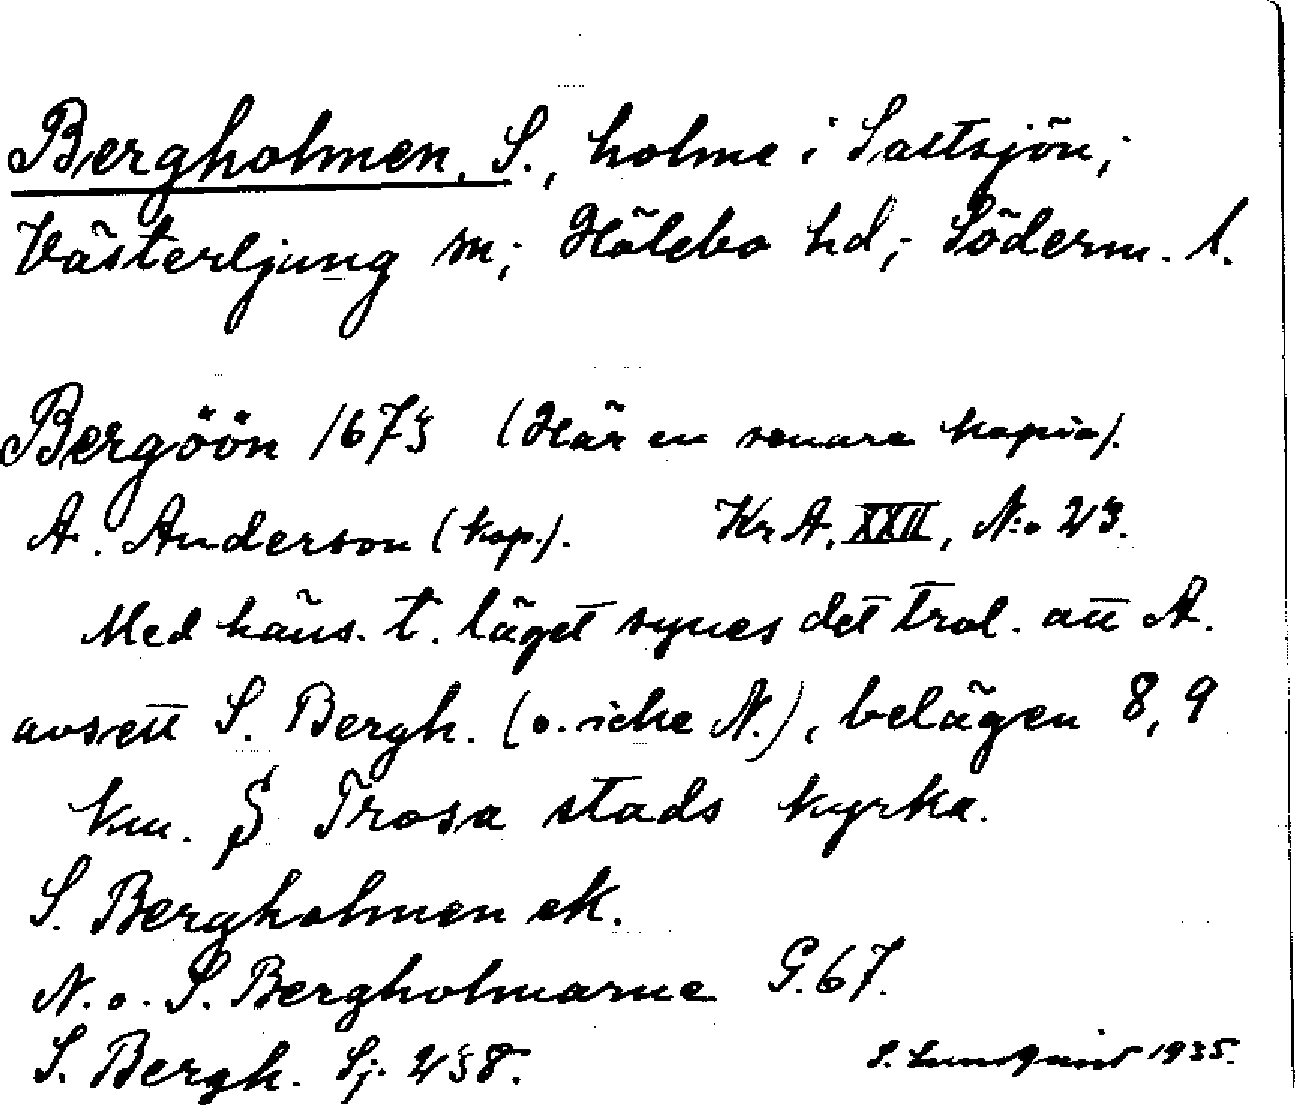 Bergholmen, S., holme i Saltsjön;
Västerljung sn; Hölebo hd; Söderm. l.
Bergöön 1673 (Här en senare kopia).
A. Anderson (kop.). Kr A. XXII, N:o 23.
Med häns. t. läget synes det trol. att A.
avsett S. Bergh. (o. icke N.), belägen 8,9
km. S Trosa stads kyrka.
S. Bergholmen ek.
N. o. S. Bergholmarne G. 67.
S. Bergh. Sj. 238.
S. Lundquist 1935.